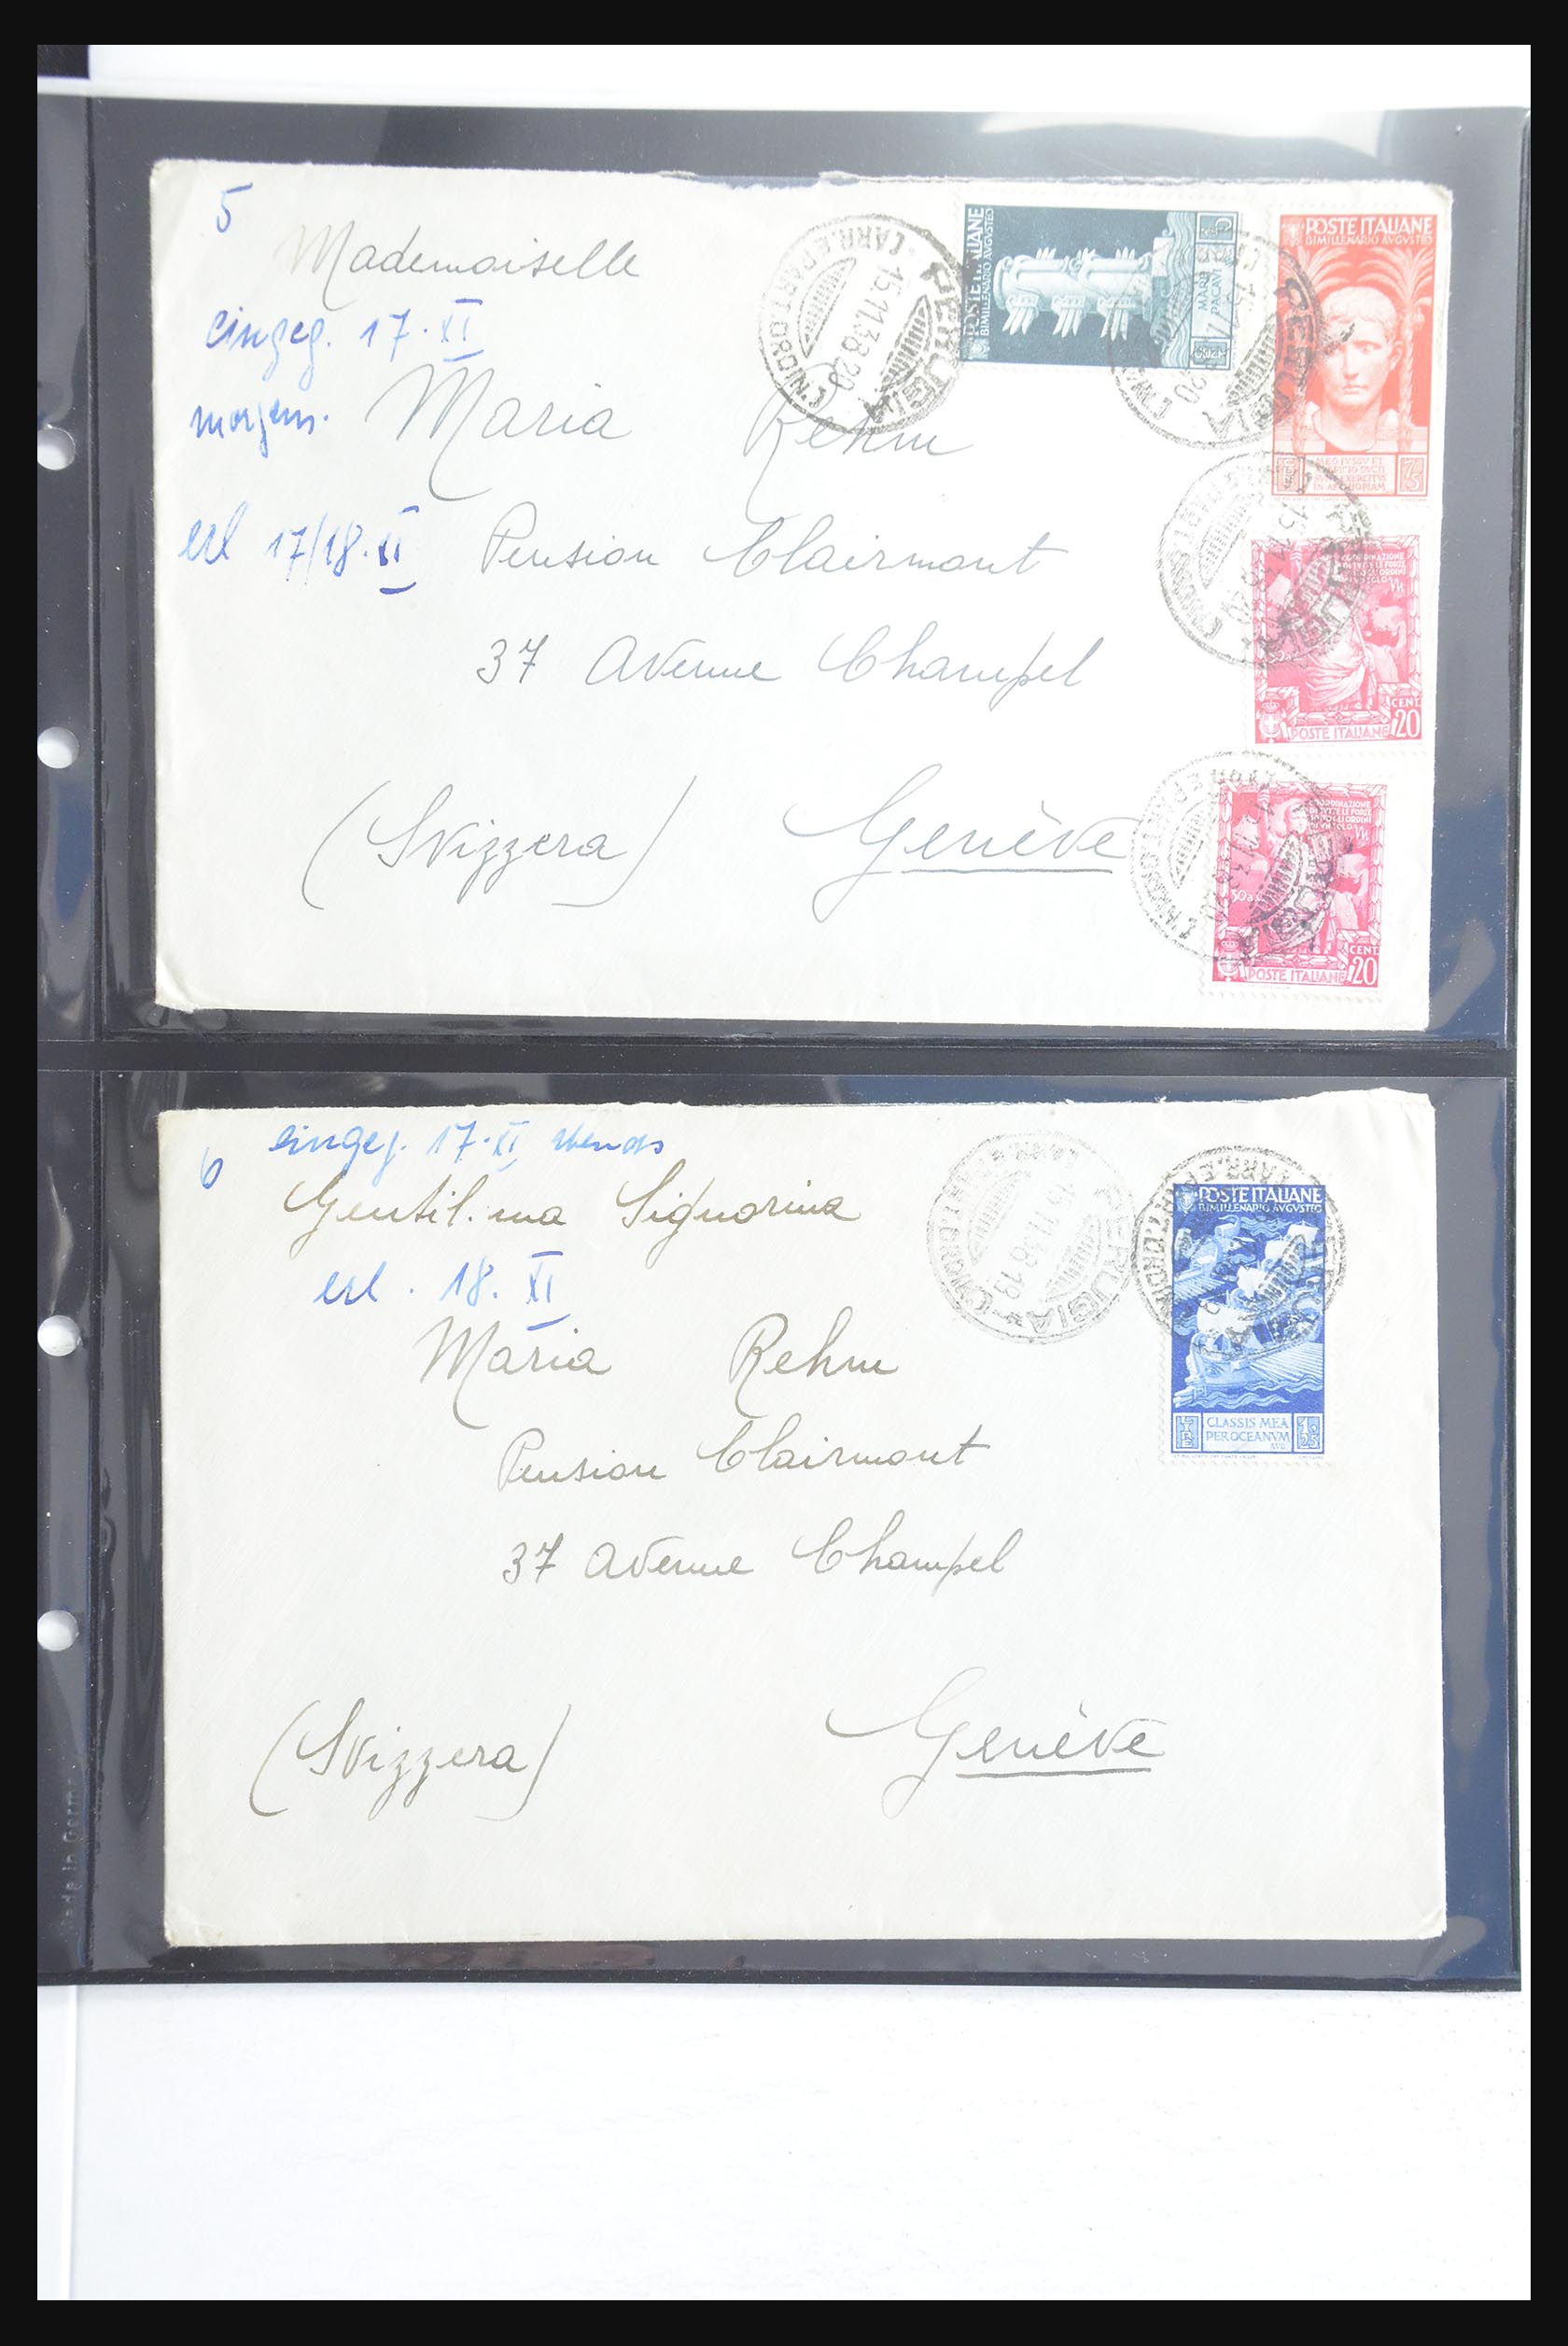 5
Mademoiselle
eingeg. 17. XI
morgens.
Maria Rehm
erl 17/18. XI
Pension Clairmont
37 Avenue Champel
(Svizzera) Genève
PERUGIA
CARR. E PART. ORDIN.
15.11.38.20
POSTE ITALIANE
BIMILLENARIO AVGVSTEO
MARE PACAVI
POSTE ITALIANE
BIMILLENARIO AVGVSTEO
75
CENT. 20
POSTE ITALIANE
CENT. 20
POSTE ITALIANE
6
eingeg. 17. XI abends
Gentil.ma Signorina
erl. 18. XI
Maria Rehm
Pension Clairmont
37 Avenue Champel
(Svizzera) Genève
PERUGIA
15.11.38.19
POSTE ITALIANE
BIMILLENARIO AVGVSTEO
LIRE
CLASSIS MEA
PER OCEANVM
AVG.
1.25
Made in Germ